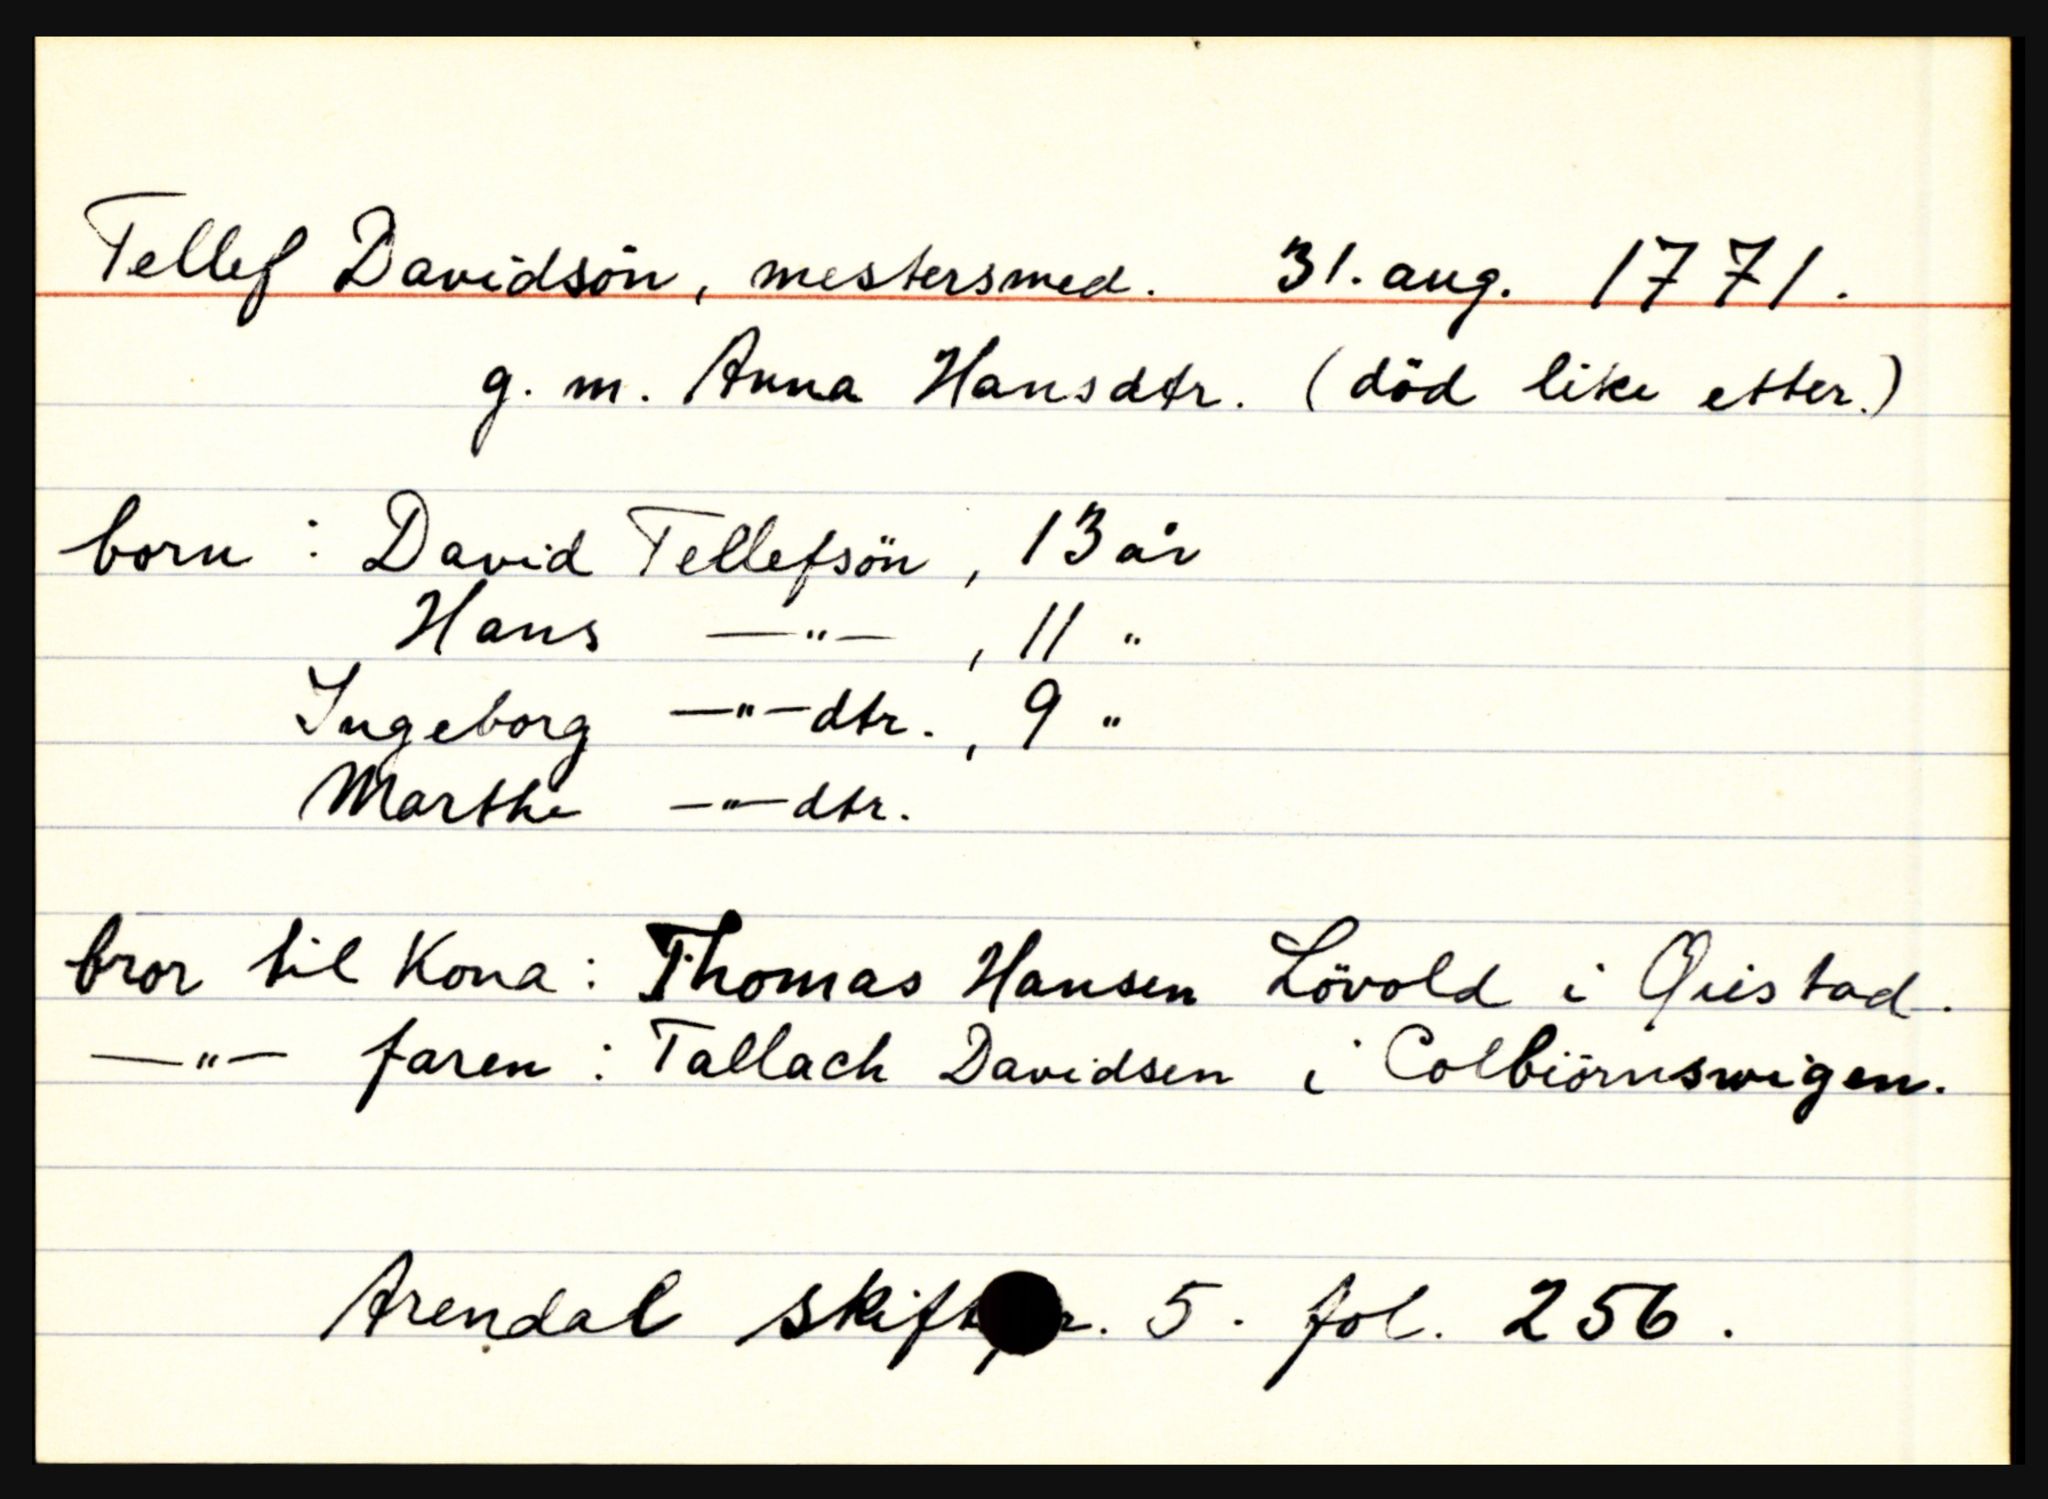 Tellef Davidsön, mestersmed. 31. aug. 1771.
g. m. Anna Hansdtr. (död like etter.)
born : David Tellefsön, 13 år
Hans —"— , 11 "
Ingeborg —"—dtr. , 9 "
Marthe —"—dtr.
bror til Kona : Thomas Hansen Lövold i Qiistad.
—"— faren : Tallach Davidsen i Colbiörnswigen.
Arendal 5. fol. 256.